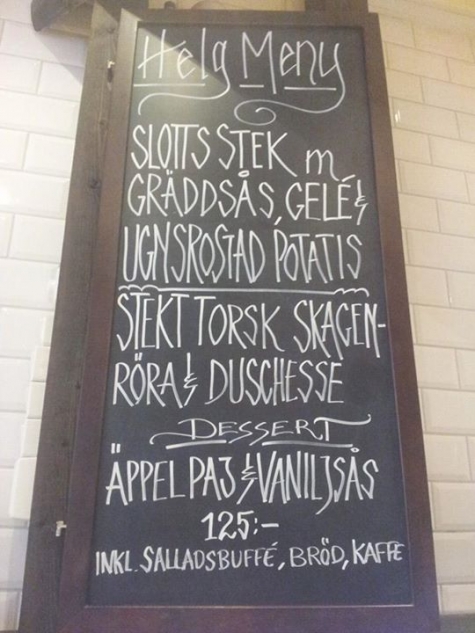 Helg Meny
SLOTTS STEK m
GRÄDDSÅS, GELÉ &
UGNSROSTAD POTATIS
STEKT TORSK SKAGEN-
RÖRA & DUSCHESSE
DESSERT
ÄPPELPAJ & VANILJSÅS
125:-
INKL. SALLADSBUFFÉ, BRÖD, KAFFE